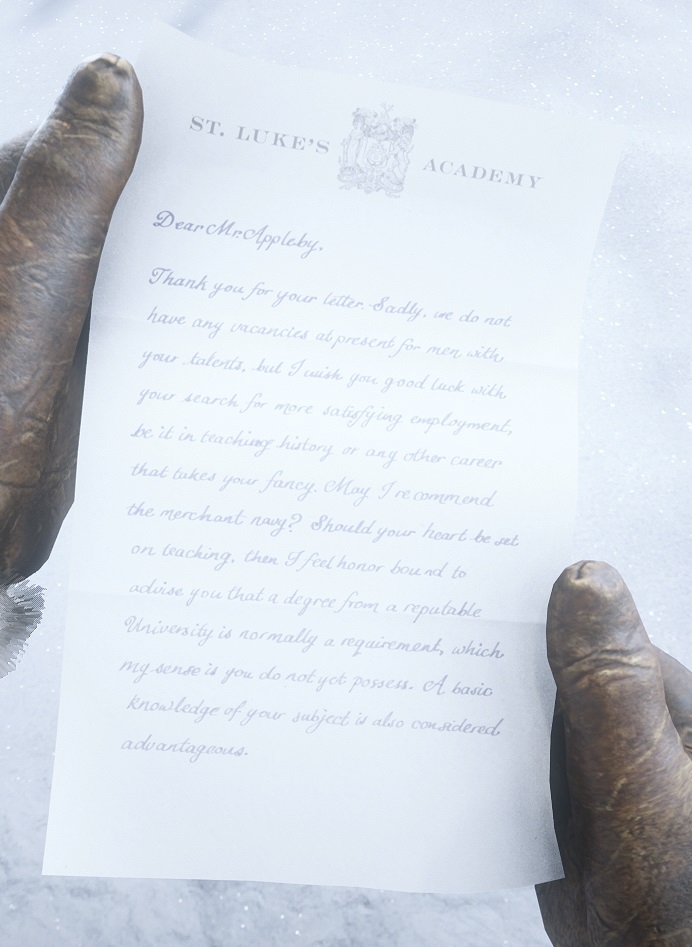 ST. LUKE'S ACADEMY
Dear Mr. Appleby,
Thank you for your letter. Sadly, we do not
have any vacancies at present for men with
your talents, but I wish you good luck with
your search for more satisfying employment,
be it in teaching history or any other career
that takes your fancy. May I recommend
the merchant navy? Should your heart be set
on teaching, then I feel honor bound to
advise you that a degree from a reputable
University is normally a requirement, which
my sense is you do not yet possess. A basic
knowledge of your subject is also considered
advantageous.